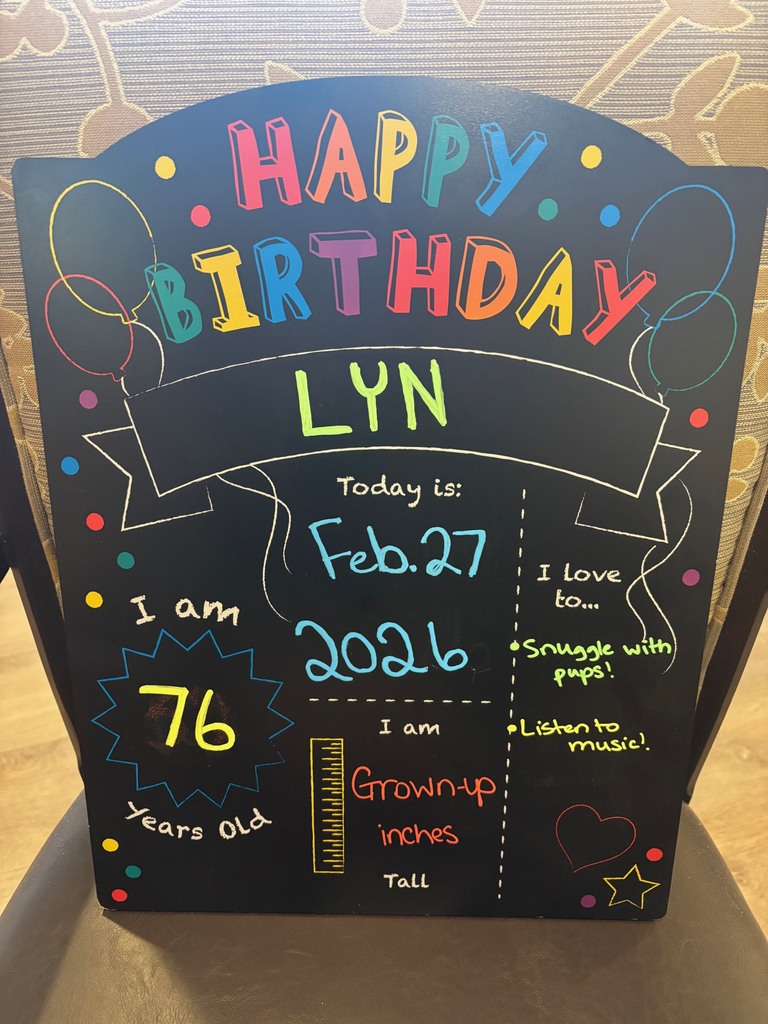 HAPPY
BIRTHDAY
LYN
Today is:
Feb.27
2026
I am
76
Years Old
I am
Grown-up
inches
Tall
I love
to...
• Snuggle with
pups!
• Listen to
music!